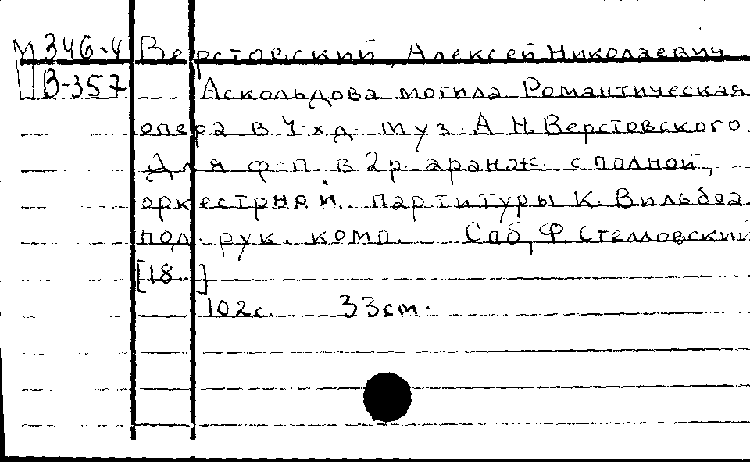 М 346-4 Верстовский, Алексей Николаевич
В-357 Аскольдова могила Романтическая
опера в 4-х д. муз. А. Н. Верстовского.
Для ф-п. в 2 р. аранж. с полной,
оркестрной партитуры К. Вильбоа
под рук. комп. Спб, Ф. Стелловский
[18 ]
102 с. 33 см.